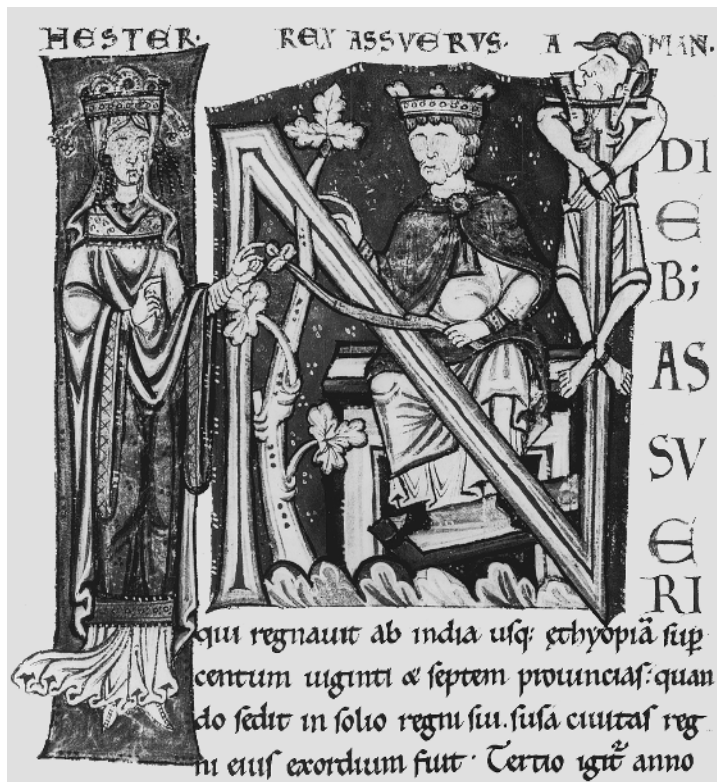 HESTER· REX ASSVERVS· A MAN·
DI
E
B;
AS
SV
E
RI
qui regnauit ab india usq: ęthyopiā sup
centum uiginti & septem prouincias: quan
do sedit in solio regni sui. susa ciuitas reg
ni eius exordium fuit· Tertio igit᷑ anno